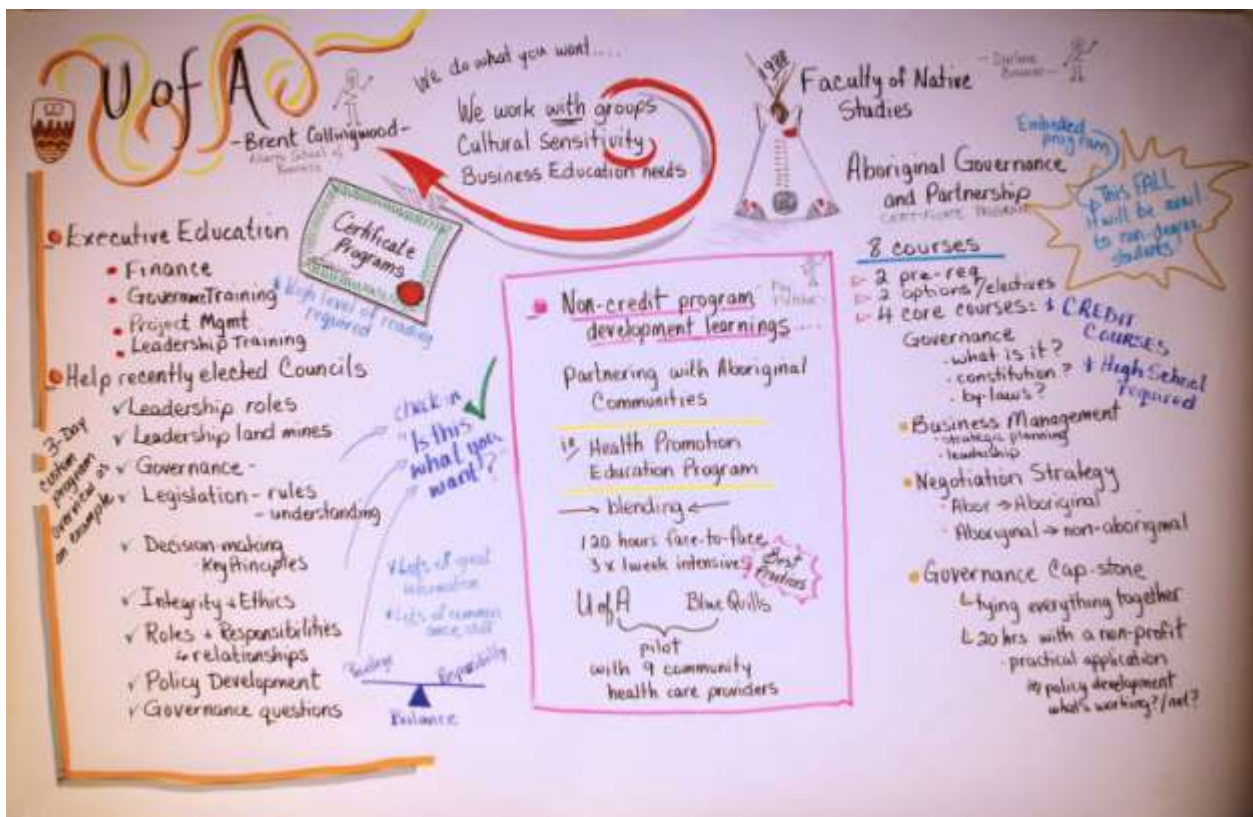 U of A
- Brent Collingwood -
Alberta School of
Business
We do what you want....
We work with groups
Cultural Sensitivity
Business Education needs
Certificate
Programs
* High level of reading
required
Executive Education
• Finance
• Governance Training
• Project Mgmt
• Leadership Training
Help recently elected Councils
✓ Leadership roles
✓ Leadership land mines
✓ Governance -
✓ Legislation - rules
- understanding
✓ Decision-making
- Key Principles
✓ Integrity + Ethics
✓ Roles + Responsibilities
↳ relationships
✓ Policy Development
✓ Governance questions
3-Day
custom
program
overview as
an example
check in
"Is this
what you
want"?
* Lots of great
information
* Lots of common
sense stuff
Privilege
Responsibility
Balance
Non-credit program
development learnings....
Partnering with Aboriginal
Communities
Health Promotion
Education Program
→ blending ←
120 hours face-to-face
3 x 1 week intensives
Best
Practices
U of A Blue Quills
pilot
with 9 community
health care providers
1988
Faculty of Native
Studies
- Darlene
Aboriginal Governance
and Partnership
CERTIFICATE PROGRAM
Embedded
program
This FALL
it will be avail.
to non-degree
students
8 courses
2 pre-req
2 options/electives
4 core courses: * CREDIT
COURSES
* High School
required
Governance
- what is it?
- constitution?
- by-laws?
• Business Management
- strategic planning
- leadership
• Negotiation Strategy
- Abor → Aboriginal
- Aboriginal → non-aboriginal
• Governance Cap-stone
↳ tying everything together
↳ 20 hrs with a non-profit
- practical application
policy development
what's working?/not?